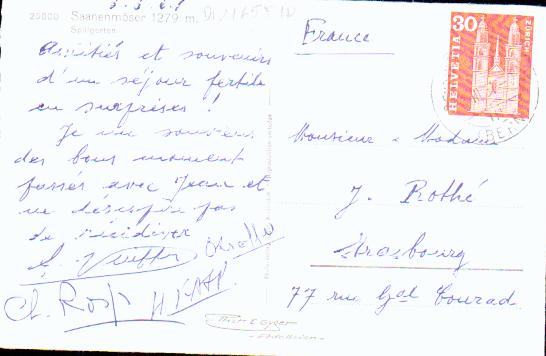 20800 Saanenmöser 1279 m.
Spillgerten
Amitiés et souvenirs
d'un séjour fertile
en surprises !
Je me souviens
des bons moment
passés avec Jean et
ne désespère pas
de récidiver
Ch. Rosp
France
HELVETIA 30 ZÜRICH
Monsieur & Madame
J. Rothé
Strasbourg
77 rue Gal Conrad.